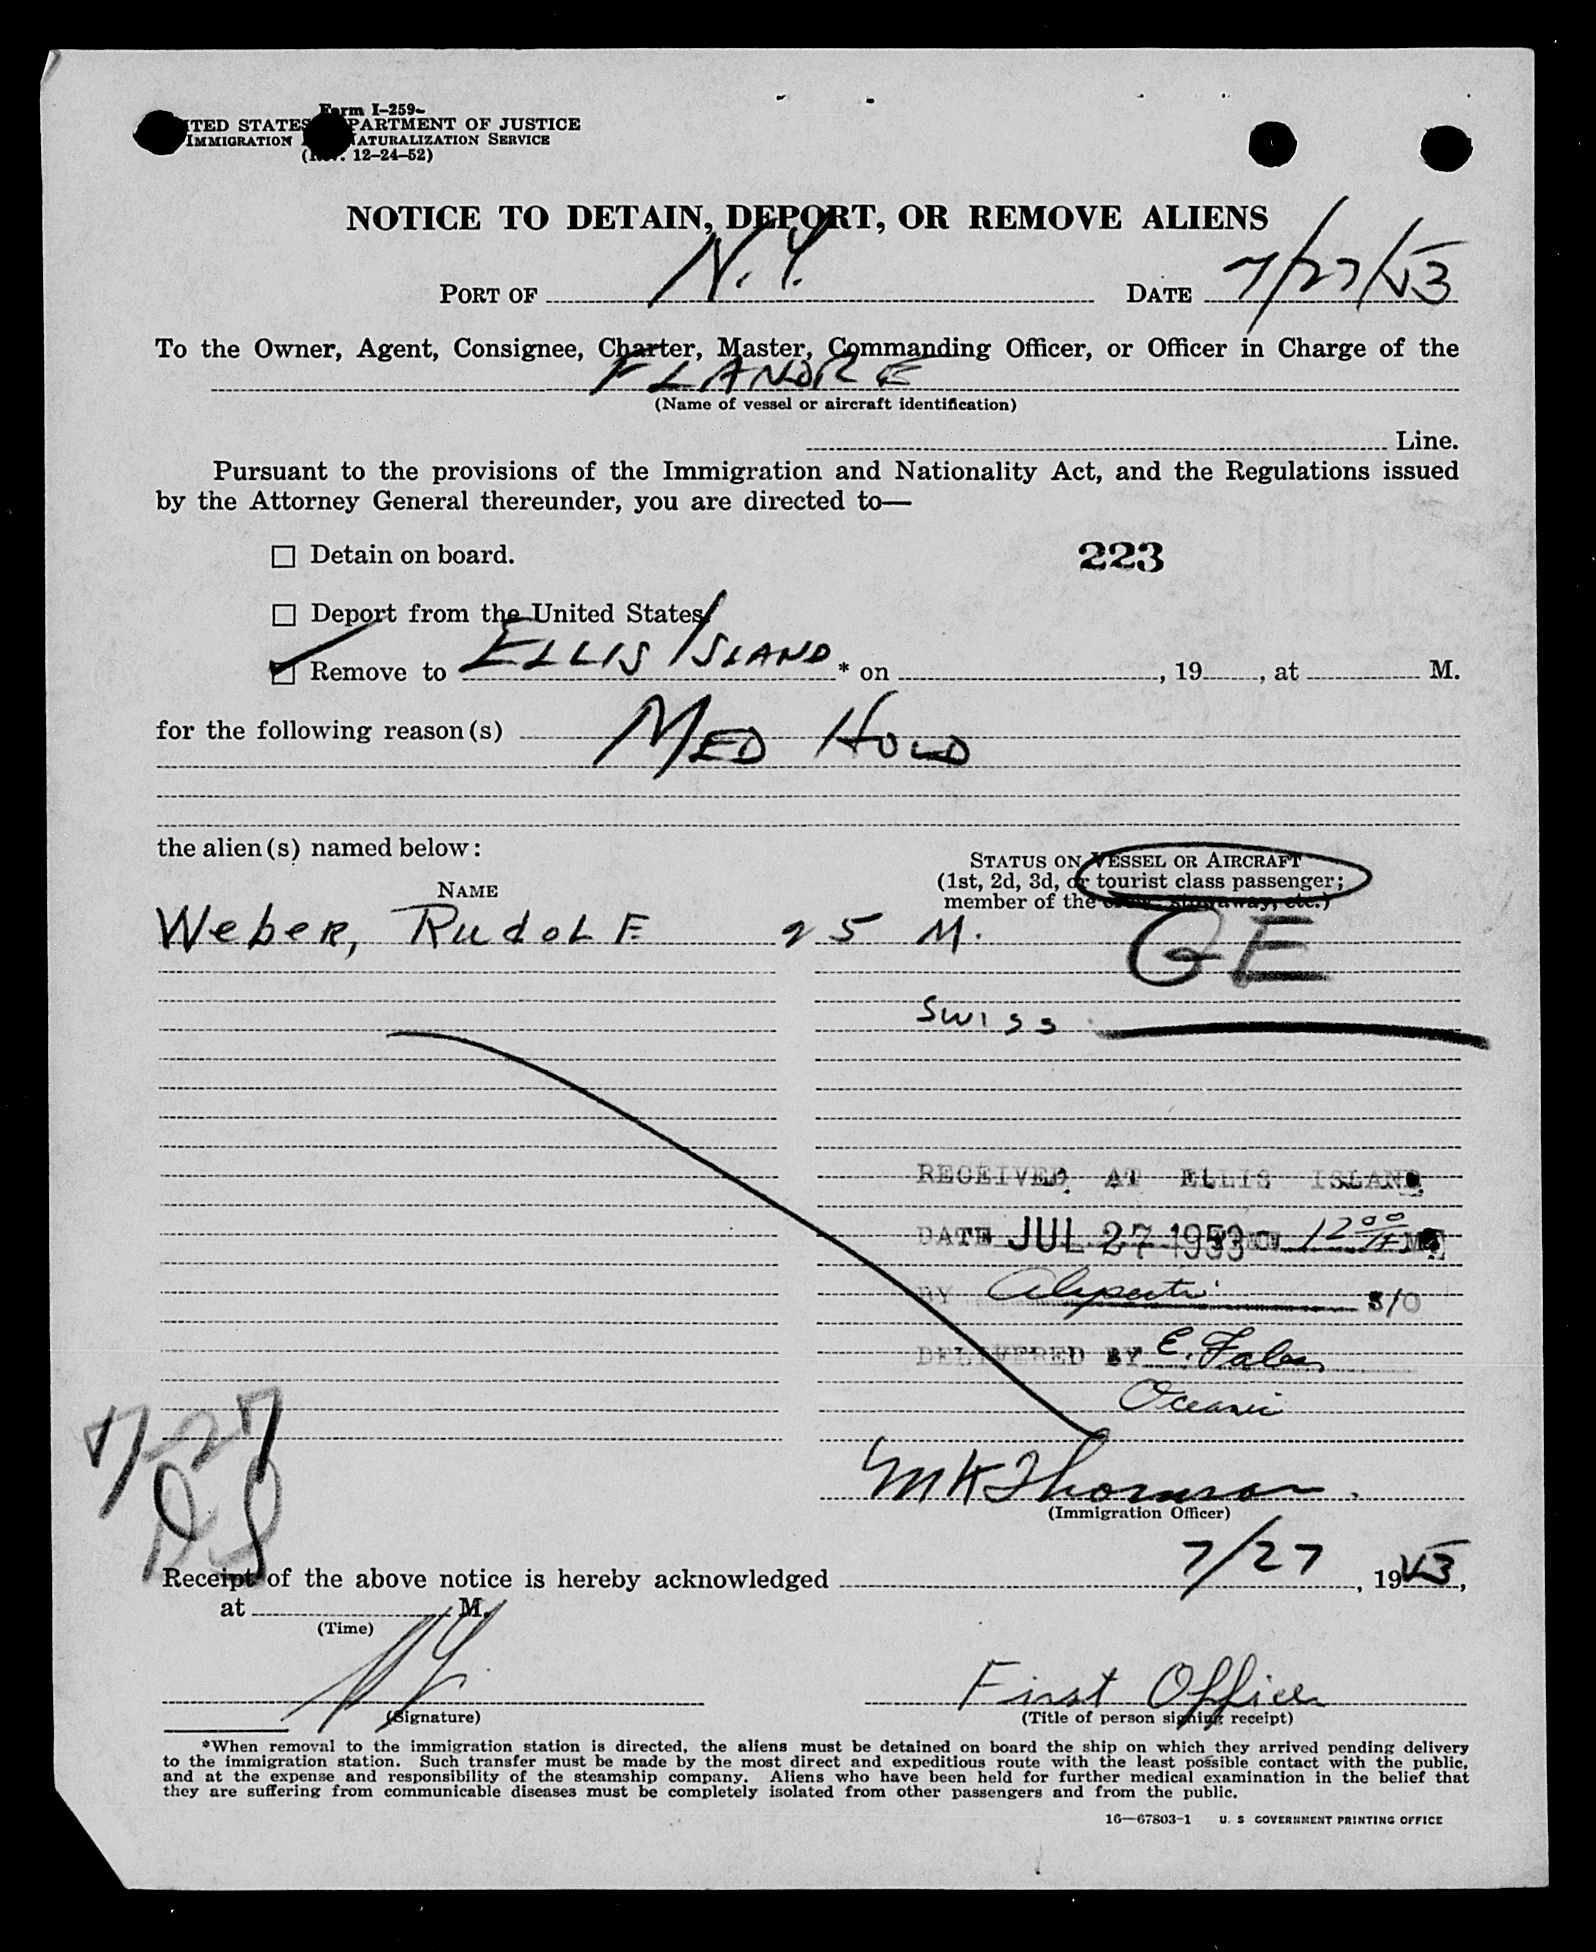 Form I-259
UNITED STATES DEPARTMENT OF JUSTICE
IMMIGRATION AND NATURALIZATION SERVICE
(Rev. 12-24-52)
NOTICE TO DETAIN, DEPORT, OR REMOVE ALIENS
PORT OF N.Y. DATE 7/27/53
To the Owner, Agent, Consignee, Charter, Master, Commanding Officer, or Officer in Charge of the
FLANDRE
(Name of vessel or aircraft identification)
Line.
Pursuant to the provisions of the Immigration and Nationality Act, and the Regulations issued
by the Attorney General thereunder, you are directed to—
Detain on board.
223
Deport from the United States
Remove to ELLIS ISLAND * on , 19 , at M.
for the following reason(s) MED HOLD
the alien(s) named below:
STATUS ON VESSEL OR AIRCRAFT
(1st, 2d, 3d, or tourist class passenger;
NAME
member of the crew, stowaway, etc.)
Weber, Rudolf 25 M. QE
Swiss
RECEIVED AT ELLIS ISLAND
DATE JUL 27 1953 12 00
BY S/O
DELIVERED BY E.
Oceanic
7-27
MK Thomson
(Immigration Officer)
7/27
Receipt of the above notice is hereby acknowledged , 1953,
at M.
(Time)
First Officer
(Signature) (Title of person signing receipt)
*When removal to the immigration station is directed, the aliens must be detained on board the ship on which they arrived pending delivery
to the immigration station. Such transfer must be made by the most direct and expeditious route with the least possible contact with the public,
and at the expense and responsibility of the steamship company. Aliens who have been held for further medical examination in the belief that
they are suffering from communicable diseases must be completely isolated from other passengers and from the public.
16—67803-1 U. S GOVERNMENT PRINTING OFFICE